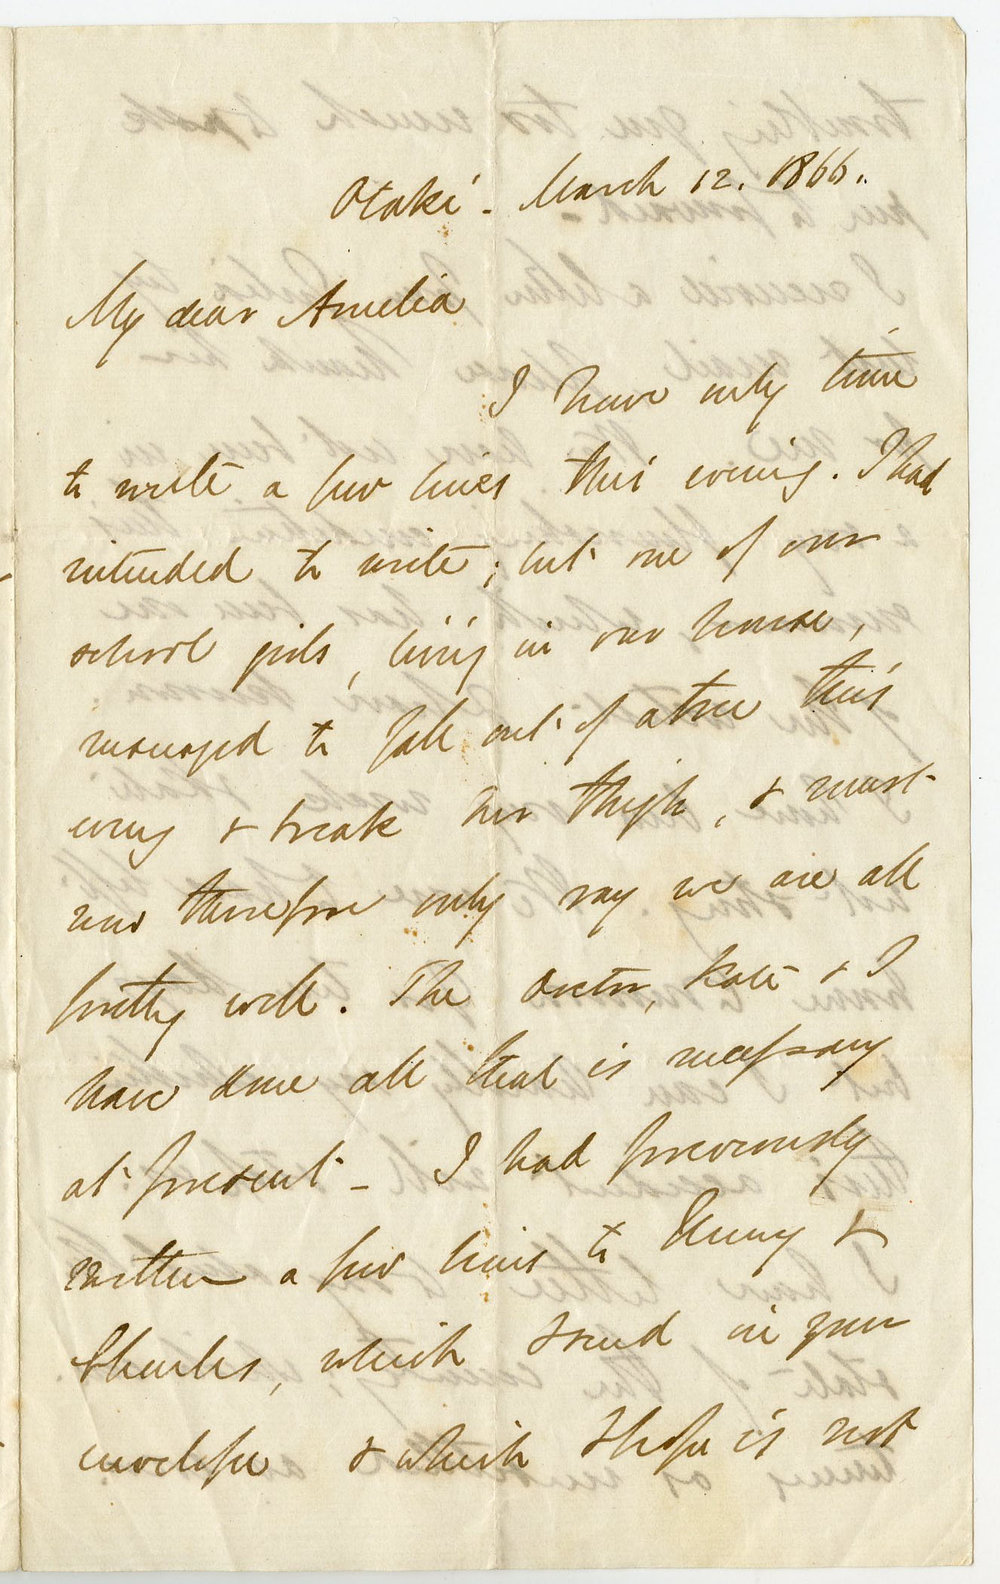 Otaki - March 12. 1866.
My dear Amelia
I have only time
to write a few lines this evening. I had
intended to write; but one of our
school girls, living in our house,
managed to fall out of a tree this
eveng & break her thigh, & must
now therefore only say we are all
pretty well. The Doctor, Kate & I
have done all that is necessary
at present - I had previously
written a few lines to Jenny &
Charles, which I send in your
envelope & which I hope is not